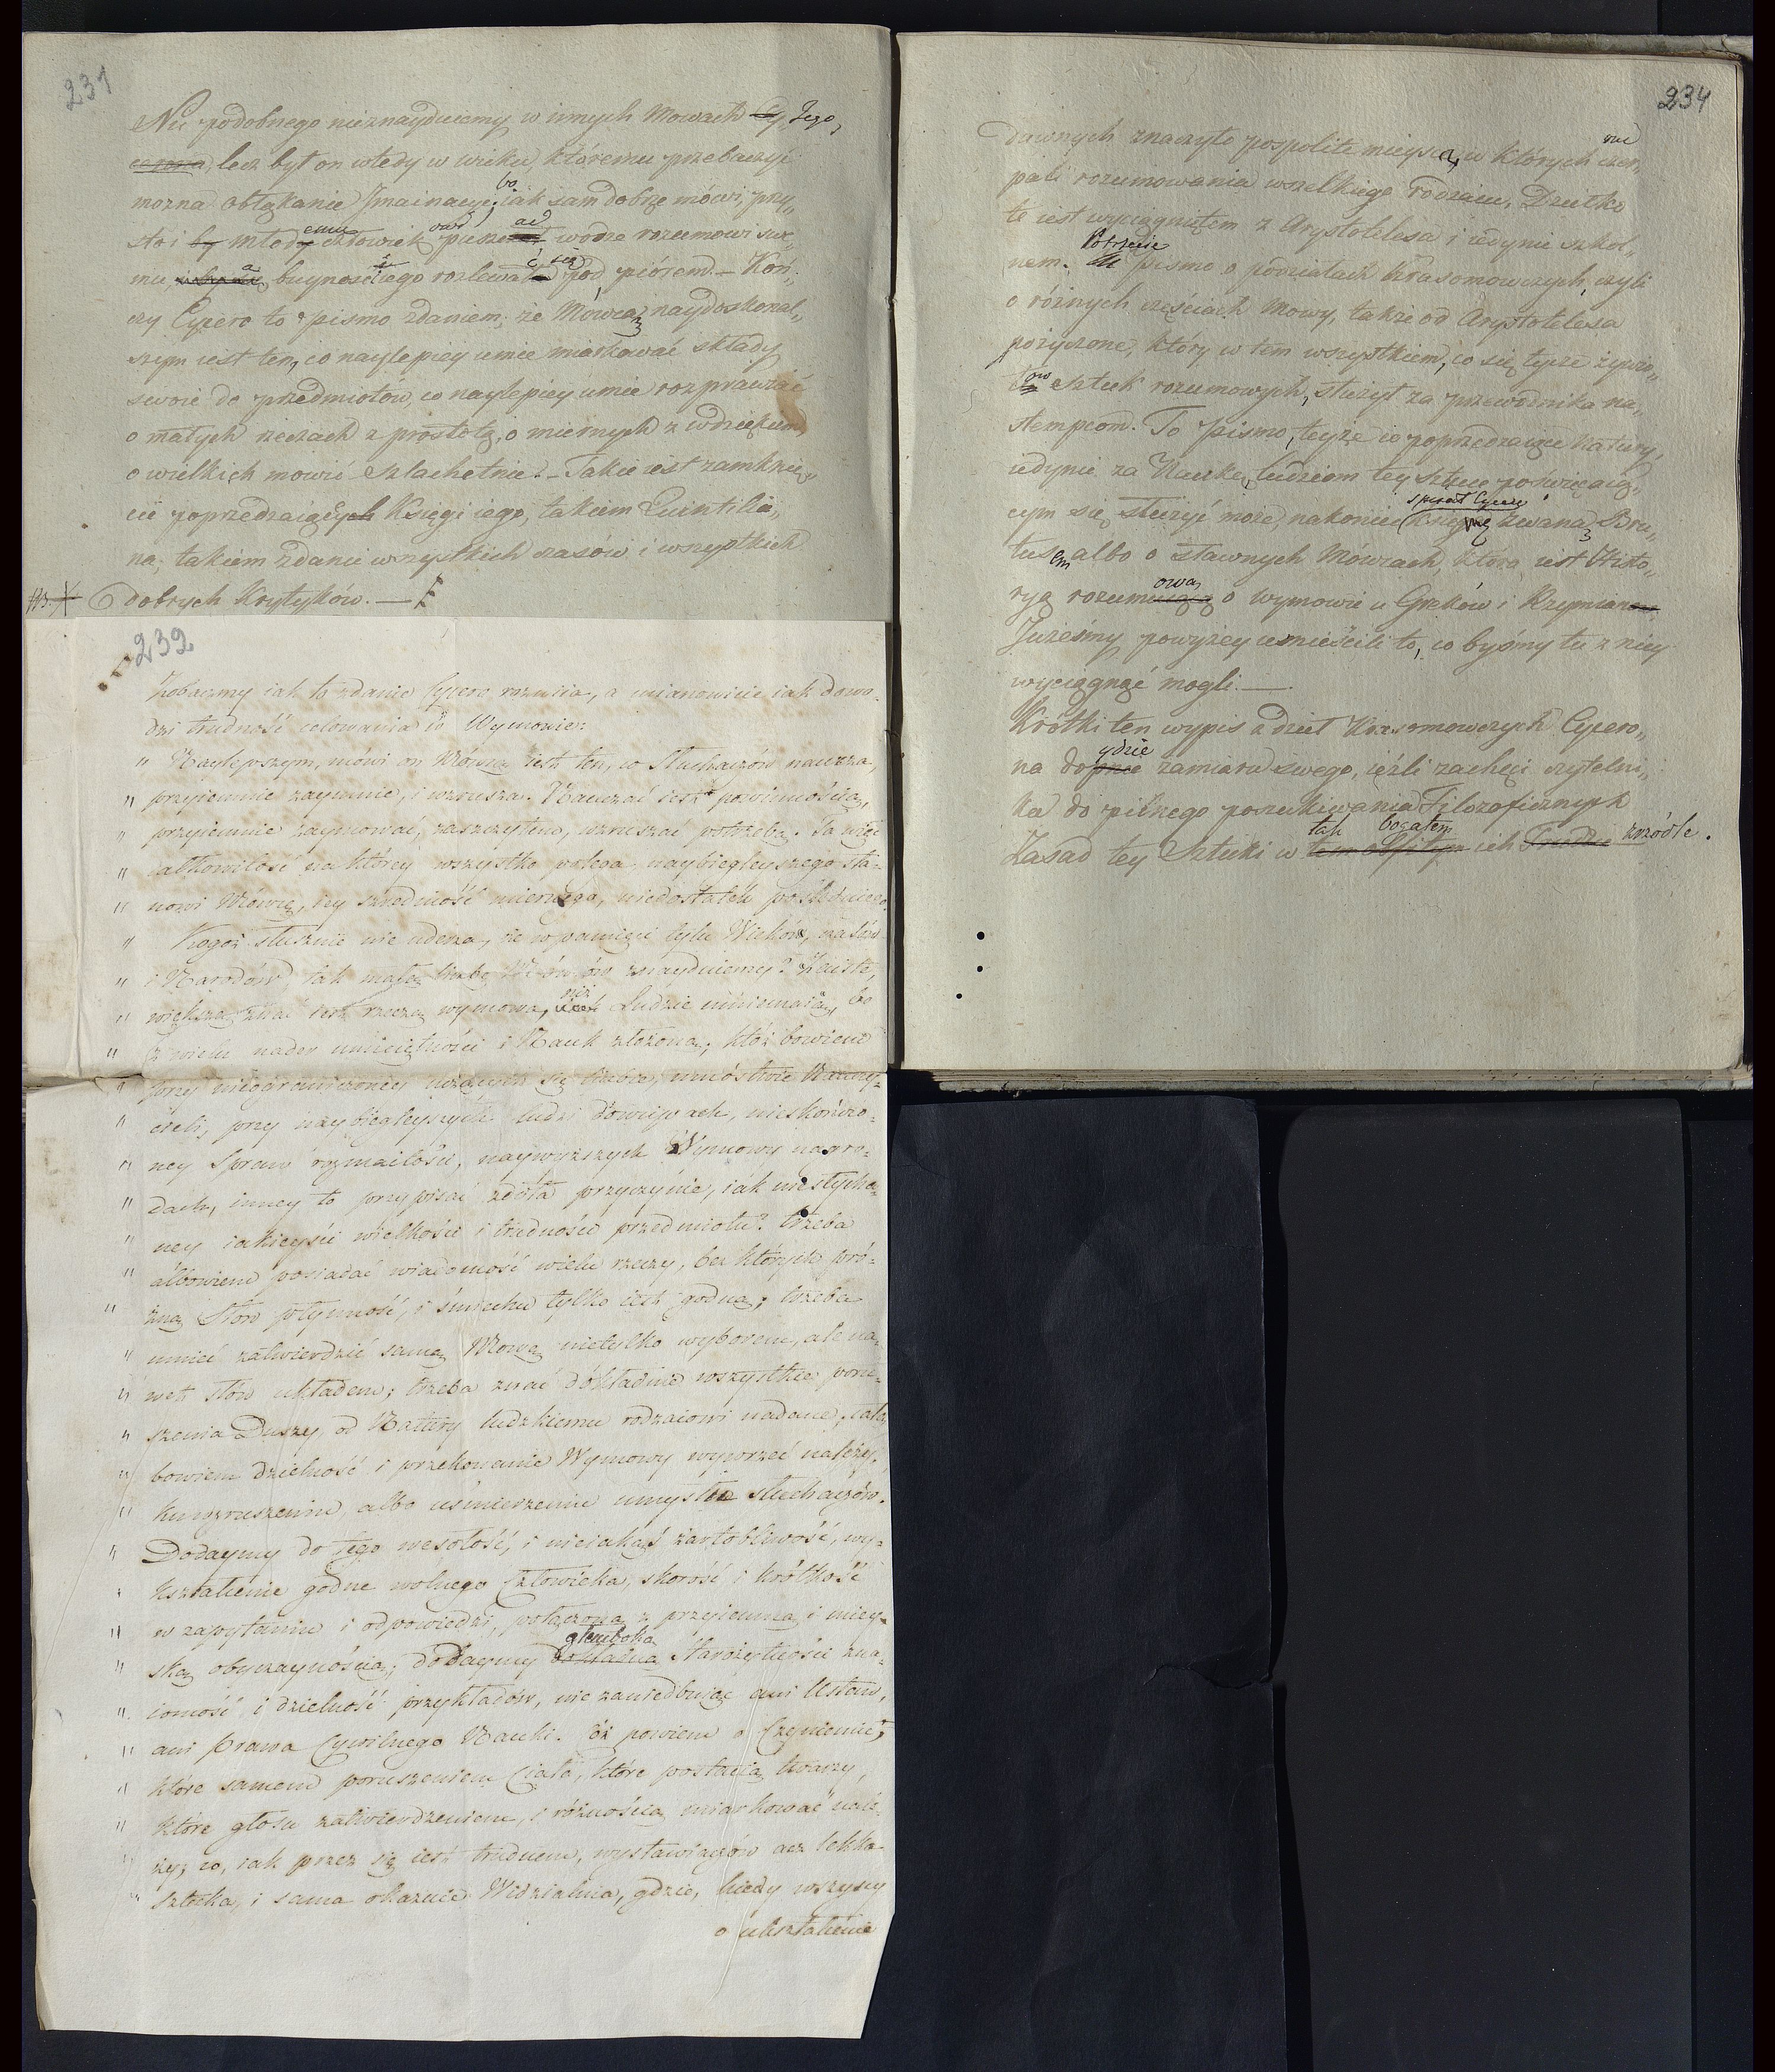 231
Nic podobnego nieznayduiemy w innych Mowach Cy„ Jego,
cerona, lecz był on wtedy w wieku, któremu przebaczyć
można obłąkanie Jmainacyi; bo iak sam dobrze mówi, przy„
stoi by młodemu człowiek puszczać wodze rozumowi swe„
mu, a buyność iego rozlewała się pod piórem. — Koń„
czy Cycero to pismo zdaniem; że Mówcą naydoskonal„
szym iest ten, co naylepiey umie miarkować składy
swoie do przedmiotów, co naylepiey umie rozprawiać
o małych rzeczach z prostotą, o miernych z wdziękiem,
o wielkich mówić szlachetnie. — Takie iest zamknię„
cie poprzedzaiących Księgi iego, takiem Quintilia„
na; takiem zdanie wszystkich czasów i wszystkich
dobrych Krytyków. —
232
Zobaczmy iak to zdanie Cycero rozwiia, a mianowicie iak dowo-
dzi trudność celowania w Wymowie:
„ Naylepszym, mówi on Mówcą iest ten, co Słuchaczów naucza,
„ przyiemnie zaymuie, i wzrusza. Nauczać iest powinnością,
„ przyiemnie zaymować, zaszczytem, wzruszać potrzebą. Ta więc
„ całkowitość na którey wszystko polega naybiegleyszego sta-
„ nowi Mówcę, iey szredność miernego, niedostatek poślednieg.
„ Kogoż słusznie nie uderza, że w pamięci tylu Wieków, czasów
„ i Narodów, tak małą liczbę Mówców znayduiemy? Zaiste,
„ większą znać iest rzeczą wymowa, niż Ludzie mniemaią, bo
„ z wielu nader umieiętności i Nauk złożona; któż bowiem
„ przy nieograniczoney uczących się liczbie, mnóstwie Nauczy-
„ cieli, przy naybiegleyszych ludzi dowcipach, nieskończo-
„ ney Spraw rozmaitości, naywyższych Wymowy nagro-
„ dach, inney to przypisać zdoła przyczynie, iak niesłycha-
„ ney iakieyści wielkości i trudności przedmiotu? trzeba
„ albowiem posiadać wiadomość wielu rzeczy, bez których pró-
„ żną słów płynność, i śmiechu tylko iest godną; trzeba
„ umieć zatwierdzić samą Mową nietylko wyborem, ale na-
„ wet słów układem; trzeba znać dokładnie wszystkie poru-
„ szenia Duszy od Natury ludzkiemu rodzaiowi nadane; cała
„ bowiem dzielność i przekonanie Wymowy wywrzeć należy,
„ ku wzruszeniu, albo uśmierzeniu umysłu słuchaczów.
„ Dodaymy do tego wesołość, i nieiakąś żartobliwość, wy-
„ kształcenie godne wolnego Człowieka, skorość i krótkość
„ w zapytaniu i odpowiedzi, połączoną z przyiemną i miey-
„ ską obyczaynością; dodaymy dokładną głęboką Starożytności zna-
„ iomość i dzielność przykładów, nie zaniedbuiąc ani Ustaw,
„ ani Prawa Cywilnego Nauki. Cóż powiem o Czynieniu;
„ które samem poruszeniem Ciała, które postacią twarzy,
„ które głosu zatwierdzeniem, i różnością miarkować nale-
„ ży; co, iak przez się iest trudnem, wystawiaczów acz lekka
„ sztuka, i sama okazuie Widzialnia, gdzie, kiedy wszyscy
o ukształcenie
234
dawnych znaczyło pospolite mieysca, w których oni czer„
pali rozumowania wszelkiego rodzaiu. Dziełko
to iest wyciągniętem z Arystotelesa i iedynie szkol„
nem. Potrzecie pismo o podziałach krasomowczych, czyli
o różnych częściach Mowy, także od Arystotelesa
pożyczone, który w tem wszystkiem, co się tycze żywio„
łów sztuk rozumowych, służył za przewodnika na„
stempcom. To pismo, teyże co poprzedzaiące natury,
iedynie za Naukę ludziom tey sztuce poświęcaią„
cym się służyć może, nakoniec spisał Cycero Księgę zwaną Bru„
tusem albo o sławnych Mówcach, która iest Histo„
ryą rozumowaną o wymowie u Greków i Rzymian
Jużeśmy powyżey umieścili to, co byśmy tu z niey
wyciągnąć mogli. —
Krótki ten wypis z dzieł Krasomowczych Cycero„
na dopnie ydzie zamiaru swego, ieżli zachęci czytelni„
ka do pilnego poszukiwania Filozoficznych
Zasad tey Sztuki w tem obfitym tak bogatem ich zrzódle.